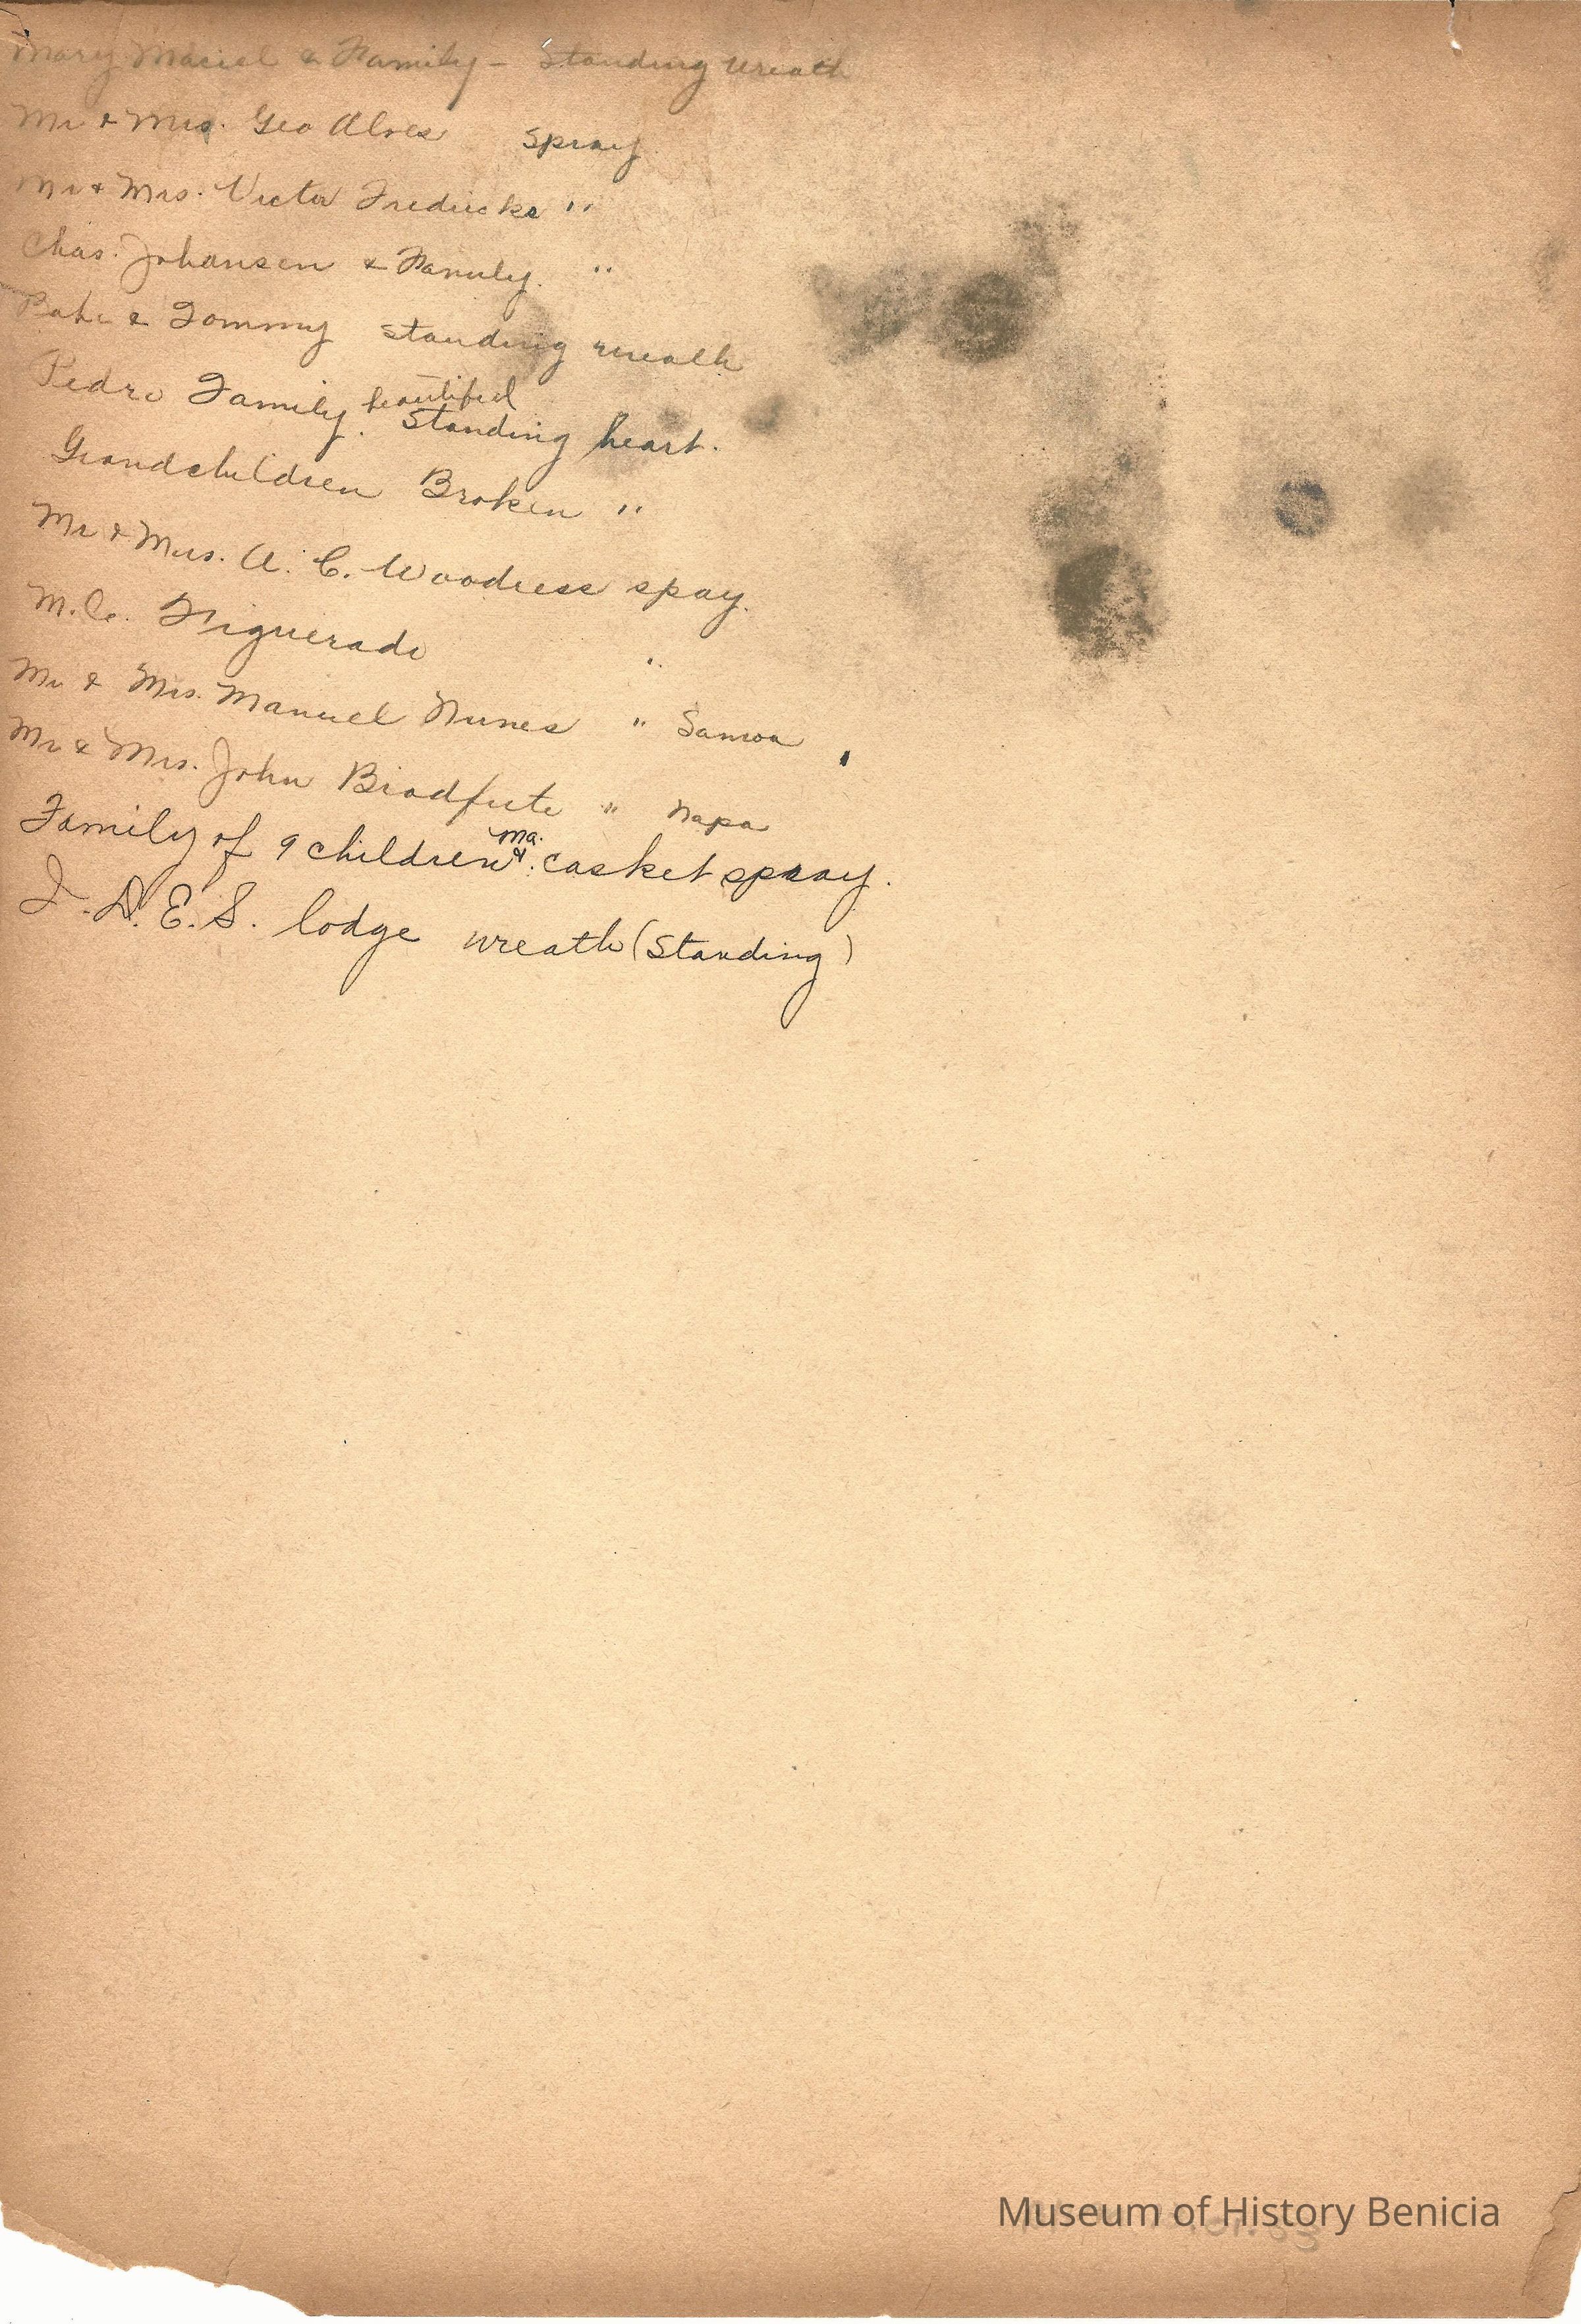 Mary Maciel & Family – Standing wreath
Mr & Mrs. Geo Alves Spray
Mr & Mrs. Victor Fredricks "
Chas. Johansen & Family. "
& Tommy standing wreath
Pedro Family. beautiful Standing heart.
Grandchildren Broken "
Mr & Mrs. A. C. Woodress spay.
M. C. Figuerado "
Mr & Mrs. Manuel Nunes " Samoa
Mr & Mrs. John Bradfute " Napa
Family of 9 children & ma. casket spray.
I. D. E. S. lodge wreath (Standing)
Museum of History Benicia